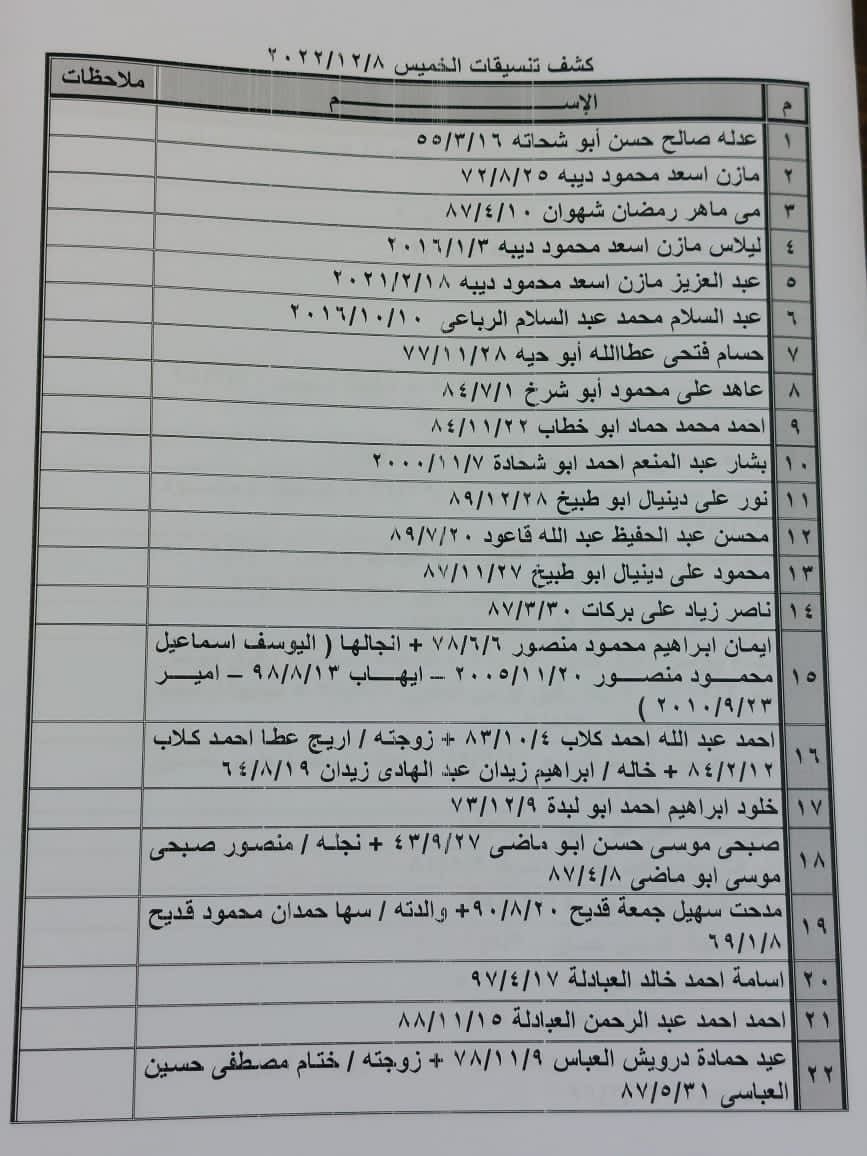 كشف تنسيقات الخميس ٢٠٢٢/١٢/٨
م الإســـــــــم ملاحظات
١ عدله صالح حسن أبو شحاته ٥٥/٣/١٦
٢ مازن اسعد محمود ديبه ٧٢/٨/٢٥
٣ مى ماهر رمضان شهوان ٨٧/٤/١٠
٤ ليلاس مازن اسعد محمود ديبه ٢٠١٦/١/٣
٥ عبد العزيز مازن اسعد محمود ديبه ٢٠٢١/٢/١٨
٦ عبد السلام محمد عبد السلام الرباعى ٢٠١٦/١٠/١٠
٧ حسام فتحى عطاالله أبو حيه ٧٧/١١/٢٨
٨ عاهد على محمود أبو شرخ ٨٤/٧/١
٩ احمد محمد حماد ابو خطاب ٨٤/١١/٢٢
١٠ بشار عبد المنعم احمد ابو شحادة ٢٠٠٠/١١/٧
١١ نور على دينيال ابو طبيخ ٨٩/١٢/٢٨
١٢ محسن عبد الحفيظ عبد الله قاعود ٨٩/٧/٢٠
١٣ محمود على دينيال ابو طبيخ ٨٧/١١/٢٧
١٤ ناصر زياد على بركات ٨٧/٣/٣٠
١٥ ايمان ابراهيم محمود منصور ٧٨/٦/٦ + انجالها ( اليوسف اسماعيل
محمـــود منصـــور ٢٠٠٥/١١/٢٠ – ايهـــاب ٩٨/٨/١٣ – اميـــر
٢٠١٠/٩/٢٣ )
١٦ احمد عبد الله احمد كلاب ٨٣/١٠/٤ + زوجته / اريج عطا احمد كلاب
٨٤/٢/١٢ + خاله / ابراهيم زيدان عبد الهادى زيدان ٦٤/٨/١٩
١٧ خلود ابراهيم احمد ابو لبدة ٧٣/١٢/٩
١٨ صبحى موسى حسن ابو ماضى ٤٣/٩/٢٧ + نجله / منصور صبحى
موسى ابو ماضى ٨٧/٤/٨
١٩ مدحت سهيل جمعة قديح ٩٠/٨/٢٠+ والدته / سها حمدان محمود قديح
٦٩/١/٨
٢٠ اسامة احمد خالد العبادلة ٩٧/٤/١٧
٢١ احمد احمد عبد الرحمن العبادلة ٨٨/١١/١٥
٢٢ عيد حمادة درويش العباس ٧٨/١١/٩ + زوجته / ختام مصطفى حسين
العباسى ٨٧/٥/٣١